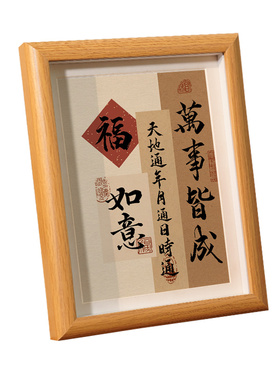 萬事皆成
天地通年月通日時通
福
如意